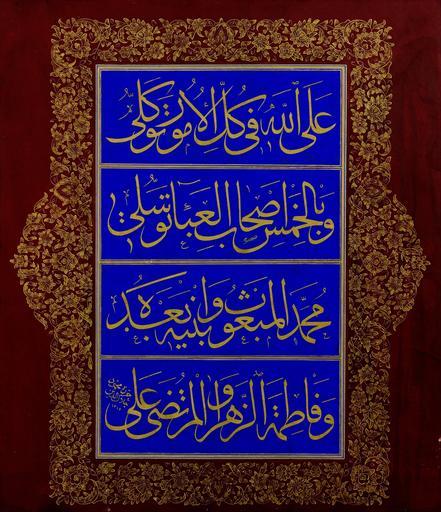 على الله في كل الأمور توكلي
وبالخمس أصحاب العباء توسلي
محمد المبعوث وابنيه بعده
وفاطمة الزهراء والمرتضى علي